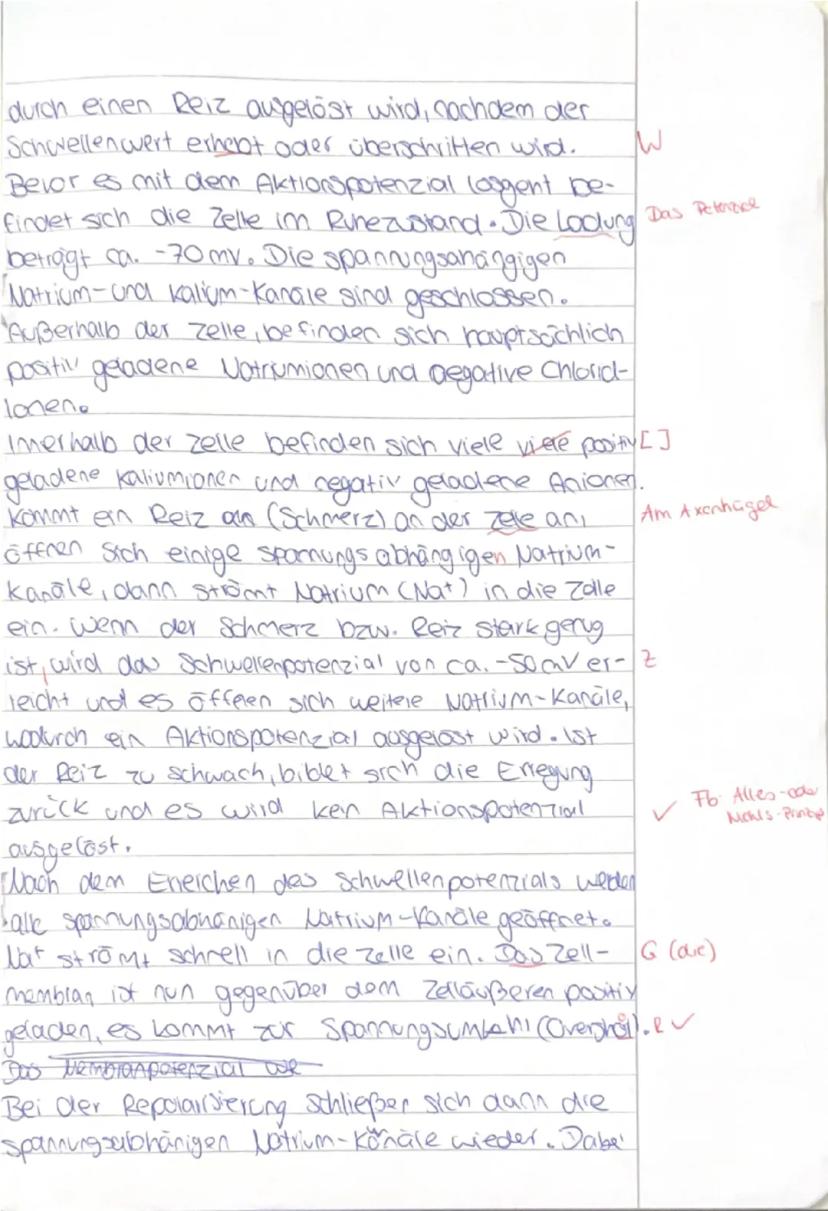 durch einen Reiz ausgelöst wird, nachdem der
Schwellenwert erhebt oder überschritten wird. W
Bevor es mit dem Aktionspotenzial losgeht be-
findet sich die Zelle im Ruhezustand. Die Ladung Das Potenzial
beträgt ca. -70mv. Die spannungsanängigen
Natrium- und Kalium-Kanäle sind geschlossen.
Außerhalb der Zelle, befinden sich hauptsächlich
positiv geladene Natriumionen und negative Chlorid-
Ionen.
Innerhalb der Zelle befinden sich viele viele positiv []
geladene Kaliumionen und negativ geladene Anionen.
Kommt ein Reiz an (Schmerz) an der Zelle an, Am Axonhügel
öffnen sich einige spannungsabhängigen Natrium-
Kanäle, dann strömt Natrium (Na+) in die Zelle
ein. Wenn der Schmerz bzw. Reiz stark genug
ist, wird das Schwellenpotenzial von ca. -50mV er- Z
reicht und es öffnen sich weitere Natrium-Kanäle,
wodurch ein Aktionspotenzial ausgelöst wird. Ist
der Reiz zu schwach, biblet sich die Erregung
zurück und es wird kein Aktionspotenzial ✓ Fb. Alles-oder
Nichts-Prinzip
ausgelöst.
Nach dem Erreichen des Schwellenpotenzials werden
alle spannungsabhänigen Natrium-Kanäle geöffnet.
Na+ strömt schnell in die Zelle ein. Das Zell- G (die)
membran ist nun gegenüber dem Zelläußeren positiv
geladen, es kommt zur Spannungsumkehr (Overshoot). R ✓
Das Membranpotenzial
Bei der Repolarisierung schließen sich dann die
spannungsabhänigen Natrium-Kanäle wieder. Dabei